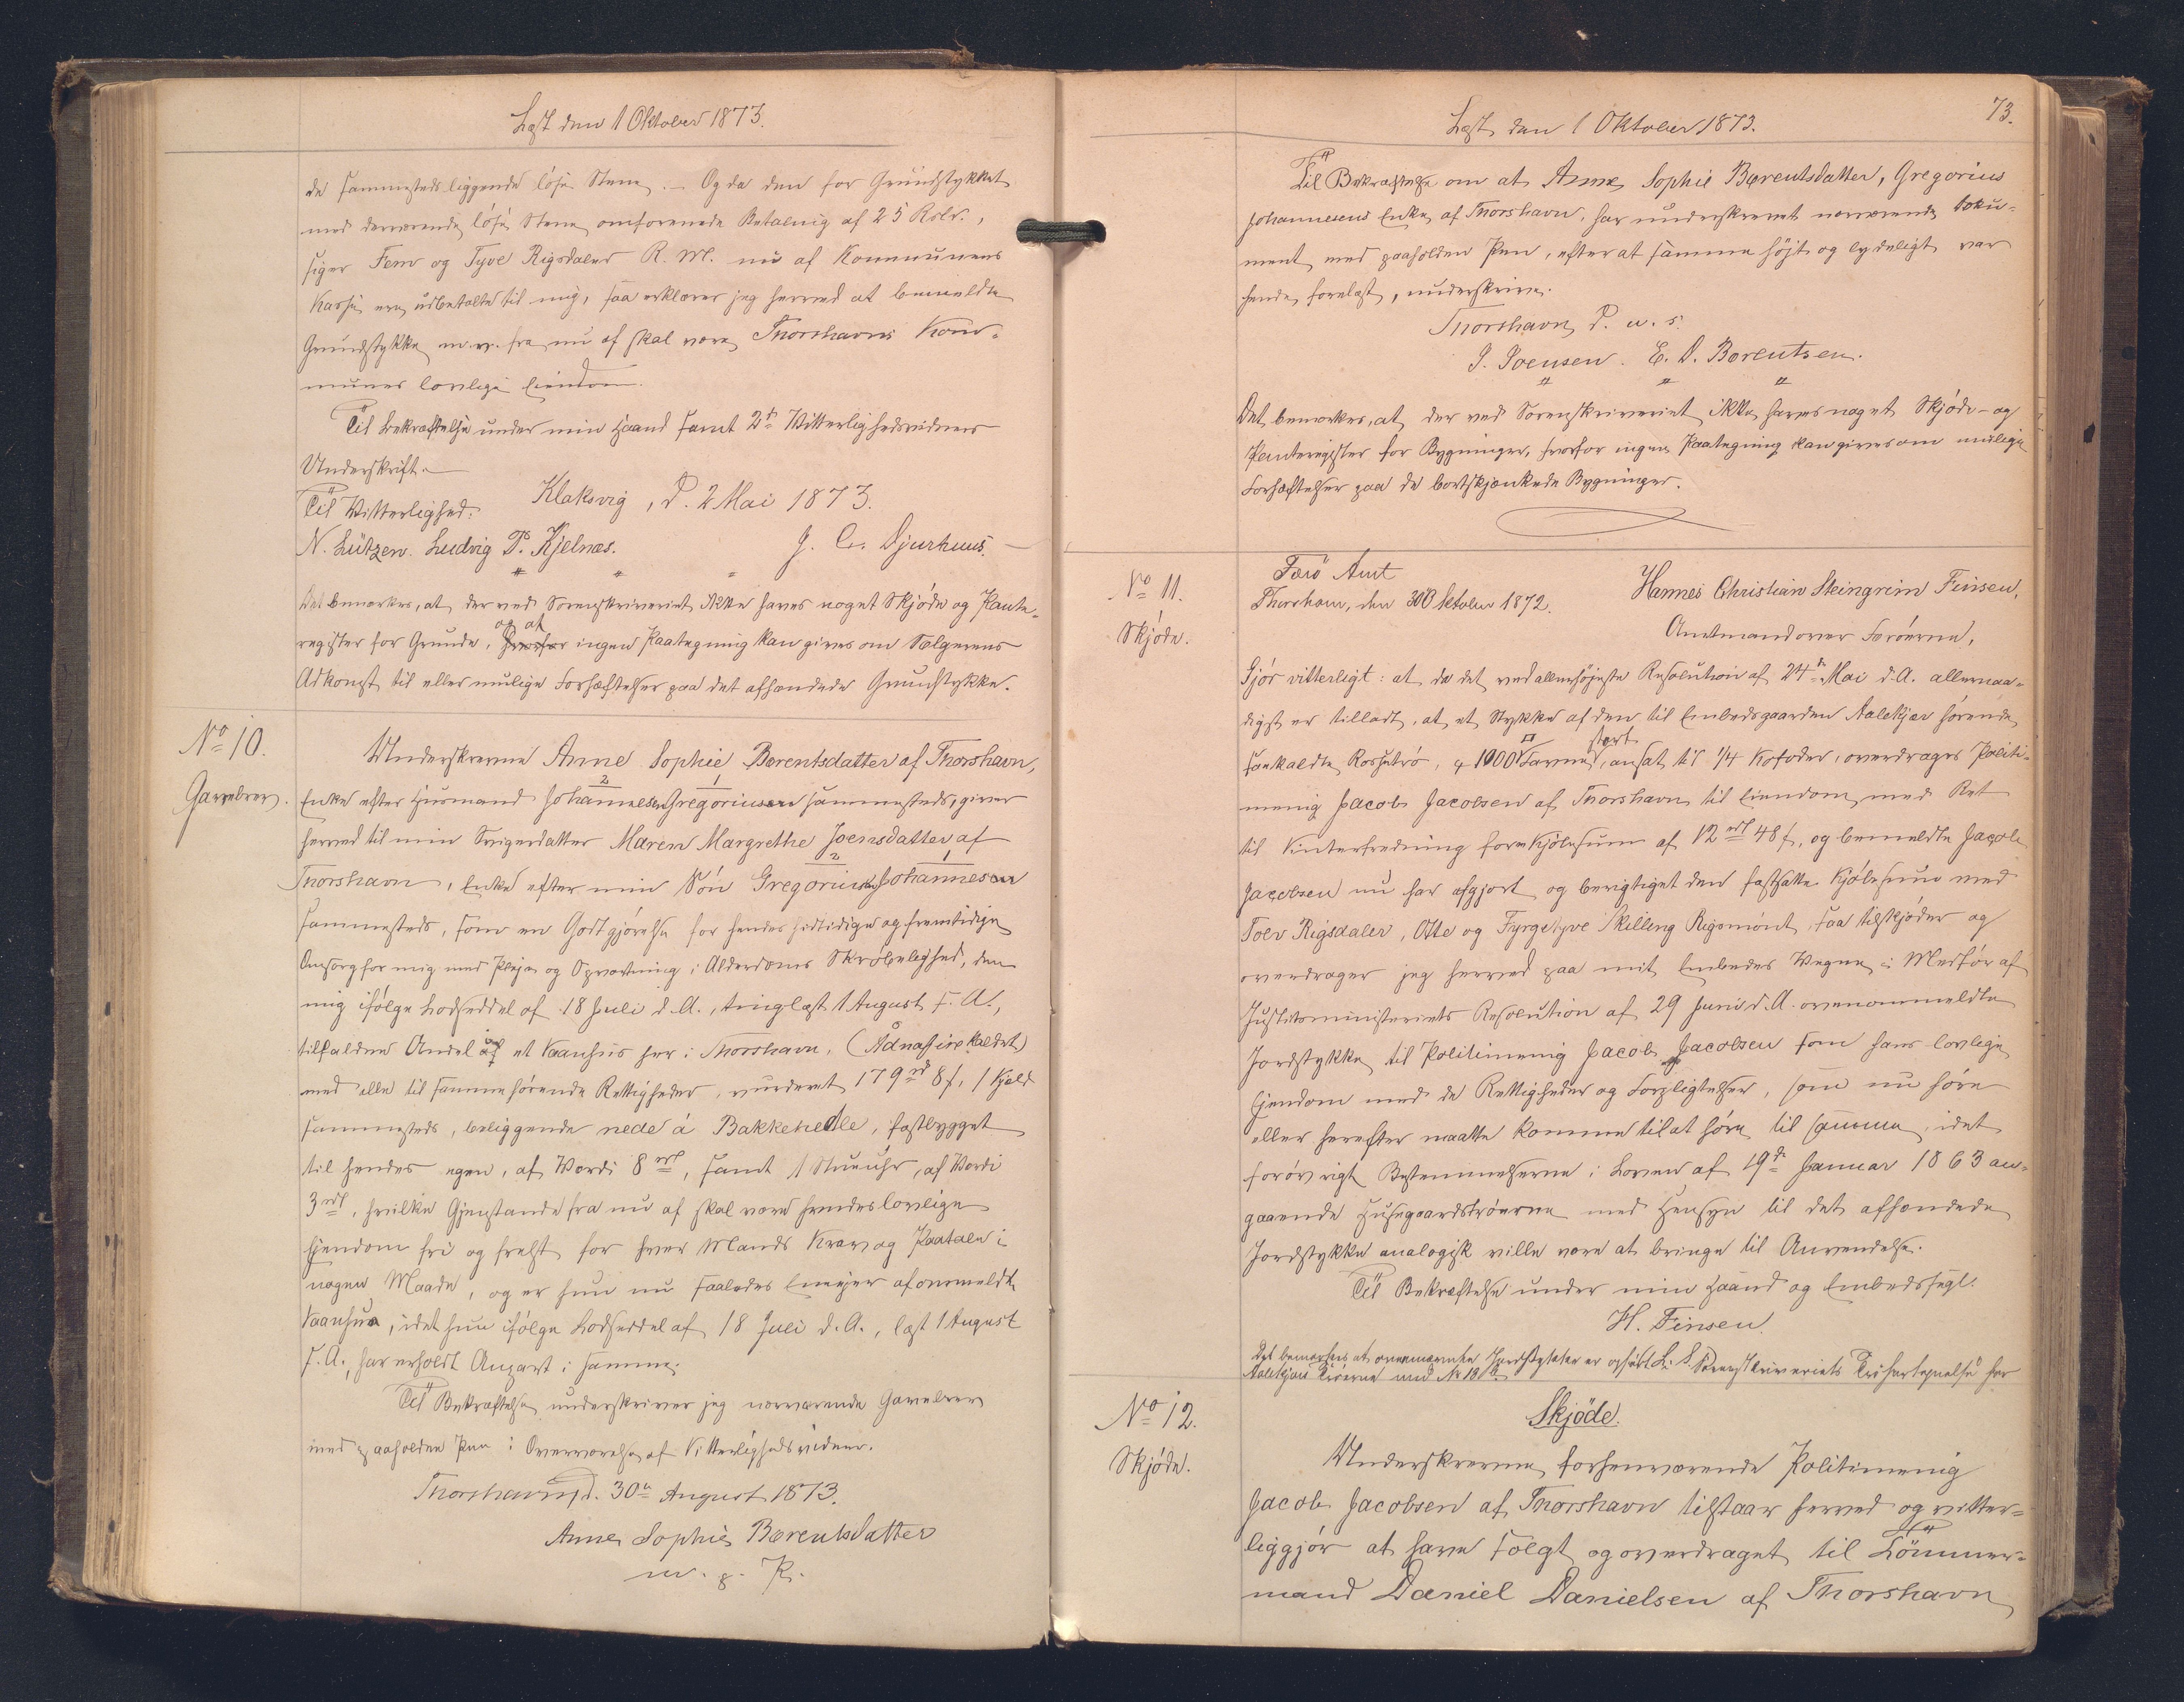 Læst den 1 Oktober 1873.
de sammesteds liggende løse Stene. – Og da den for Grundstykket
med derværende løse Stene omforenede Betaling af 25 Rdlr.,
siger Fem og Tyve Rigsdaler R. M. nu af Kommunens
Kasse ere udbetalte til mig, saa erklærer jeg herved at bemeldte
Grundstykke m.v. fra nu af skal være Thorshavns Kom-
munes lovlige Eiendom.
Til Bekræftelse under min Haand samt 2de Vitterlighedsvidners
Underskrift. –
Klaksvig, d. 2 Mai 1873.
Til Vitterlighed:
N. Lützen. Ludvig P. Kjelnæs. J. C. Djurhuus. –
Det bemærkes, at der ved Sorenskriveriet ikke haves noget Skjøde og Pante-
register for Grunde, og at ingen Paategning kan gives om Sælgerens
Adkomst til eller mulige Forhæftelser paa det afhændede Grundstykke.
No 10.
Gavebrev.
Underskrevne Anne Sophie Bærentsdatter af Thorshavn,
Enke efter Husmand Johannesen Gregoriusen sammesteds, giver
herved til min Svigerdatter Maren Margrethe Joensdatter af
Thorshavn, Enke efter min Søn Gregorius Johannesen
sammesteds, som en Godtgjørelse for hendes hidtidige og fremtidige
Omsorg for mig med Pleje og Opvartning i Alderdoms Skrøbelighed, den
mig ifølge Lodseddel af 18 Juli d. A., tinglæst 1 August s. A.,
tilfaldne Andel af et Vaanhus her i Thorshavn, (Ådnastive kaldet)
med alle til samme hørende Rettigheder, vurderet 179 rd 8 s, 1 Kjeld
sammesteds, beliggende nede á Bakkehedle, fastbygget
til hendes egen, af Værdi 8 rd, samt 1 Stueuhr, af Værdi
3 rd, hvilke Gjenstande fra nu af skal være hendes lovlige
Ejendom fri og frelst for hver Mands Krav og Paatale i
nogen Maade, og er hun nu saaledes Eneejer af ommeldte
Vaanhus, idet hun ifølge Lodseddel af 18 Juli d. A., læst 1 August
s. A., har erholdt Anpart i samme.
Til Bekræftelse underskriver jeg nærværende Gavebrev
med paaholden Pen i Overværelse af Vitterlighedsvidner.
Thorshavn, d. 30te August 1873.
Anne Sophie Bærentsdatter
m. p. P.
73.
Læst den 1 Oktober 1873.
Til Bekræftelse om at Anne Sophie Bærentsdatter, Gregorius
Johannesens Enke af Thorshavn, har underskrevet nærværende Doku-
ment med paaholden Pen, efter at samme højt og lydeligt var
hende forelæst, underskrive.
Thorshavn, D. u. s.
J. Joensen. E. D. Bærentsen.
Det bemærkes, at der ved Sorenskriveriet ikke haves noget Skjøde- og
Panteregister for Bygninger, hvorfor ingen Paategning kan gives om mulige
Forhæftelser paa de bortskjænkede Bygninger.
No 11.
Skjøde.
Færö Amt
Thorshavn, den 30 Oktober 1872.
Hannes Christian Steingrim Finsen,
Amtmand over Færøerne,
Gjør vitterligt: at da det ved allerhøjeste Resolution af 24de Mai d. A. allernaa-
digst er tilladt, at et Stykke af den til Embedsgaarden Aalekjær hørende
saakaldte Rossatrø, 1900 □ Favne stort, ansat til 1/4 Kofoder, overdrages Politi-
menig Jacob Jacobsen af Thorshavn til Eiendom med Ret
til Vinterfredning for en Kjøbesum af 12 rd 48 s, og bemeldte Jacob
Jacobsen nu har afgjort og berigtiget den fastsatte Kjøbesum med
Tolv Rigsdaler, Otte og Fyrgetyve Skilling Rigsmønt, saa tilskjøder og
overdrager jeg herved paa mit Embedes Vegne i Medfør af
Justitsministeriets Resolution af 29 Juni d. A. ovenommeldte
Jordstykke til Politimenig Jacob Jacobsen som hans lovlige
Ejendom med de Rettigheder og Forpligtelser, som nu høre
eller herefter maatte komme til at høre til samme, idet
forøvrigt Bestemmelserne i Loven af 19de Januar 1863 an-
gaaende Husegaardstrøerne med Hensyn til det afhændede
Jordstykke analogisk ville være at bringe til Anvendelse.
Til Bekræftelse under min Haand og Embedssegl.
H. Finsen.
(L. S.)
Det bemærkes at ovennævnte Jordstykke er opført i Sorenskriveriets Trøfortegnelse for
Aalekjærs Trøerne med No 18 b.
No 12.
Skjøde.
Skjøde.
Underskrevne forhenværende Politimenig
Jacob Jacobsen af Thorshavn tilstaar herved og vitter-
liggjør at have solgt og overdraget til Tömmer-
mand Daniel Danielsen af Thorshavn